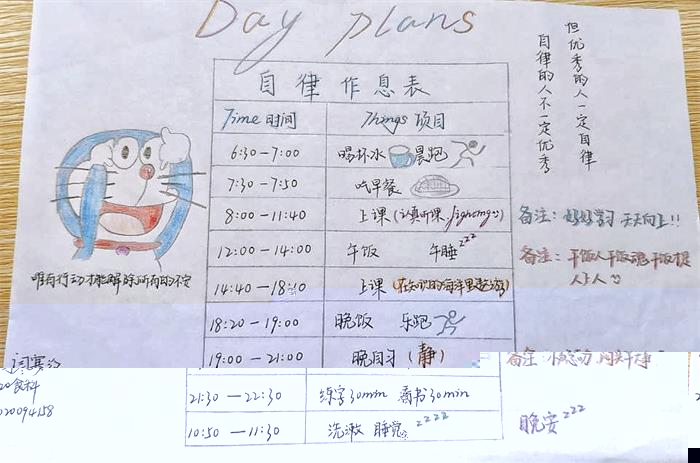 Day plans
自律的人不一定优秀
但优秀的人一定自律
自律作息表
Time 时间 Things 项目
6:30-7:00 喝杯水 晨跑
7:30-7:50 吃早餐
8:00-11:40 上课(认真听课
备注: 好好学习 天天向上!!
12:00-14:00 午饭 午睡zzz
备注: 干饭人干饭魂干饭都是
人上人
唯有行动才能解除所有的不安
14:40-18:10 上课(在知识的海洋里遨游)
18:20-19:00 晚饭 乐跑
19:00-21:00 晚自习(静)
备注:
21:30-22:30 练字30min 看书30min
10:50-11:30 洗漱 睡觉zzzz
晚安zzz
020094158